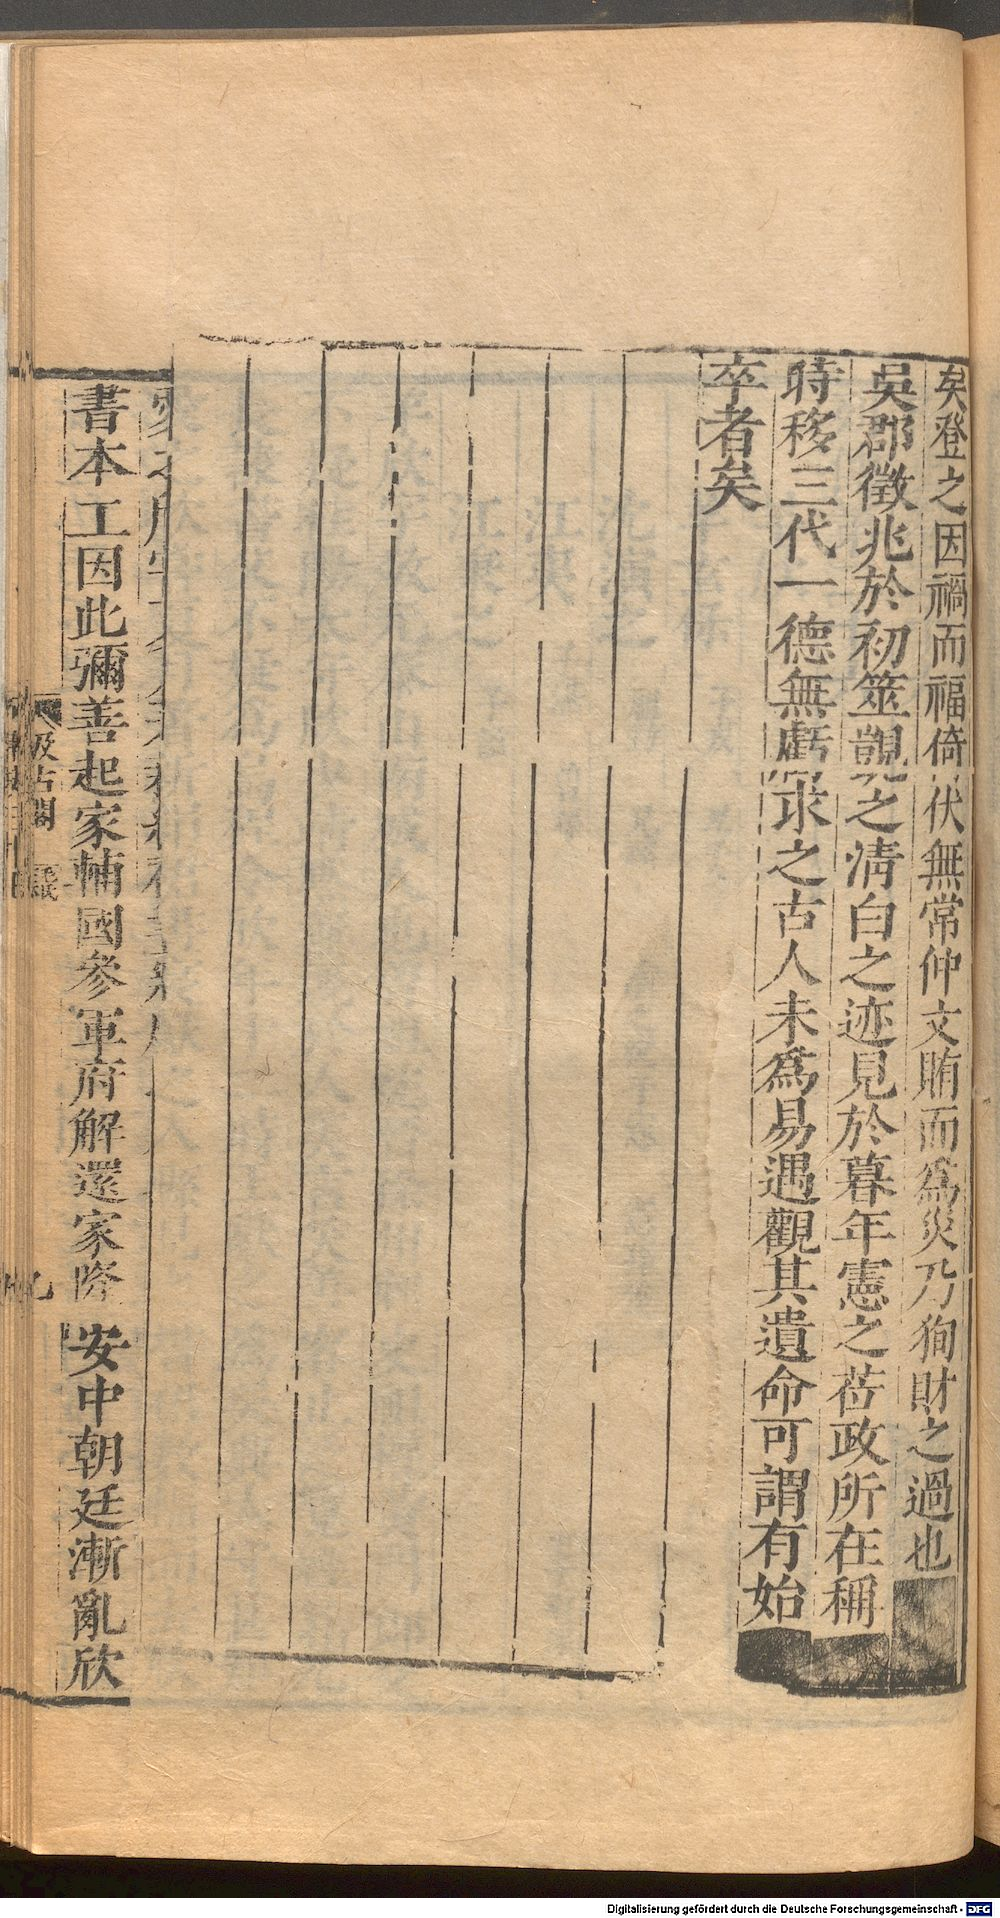 矣登之因禍而福倚伏無常仲文賄而爲災乃徇財之過也
吳郡徵兆於初筮覬之清白之迹見於暮年憲之莅政所在稱
時移三代一德無虧求之古人未爲易遇觀其遺命可謂有始
卒者矣
書本工因此彌善起家輔國參軍府解還家隆安中朝廷漸亂欣
汲古閣
毛氏
Digitalisierung gefördert durch die Deutsche Forschungsgemeinschaft - DFG